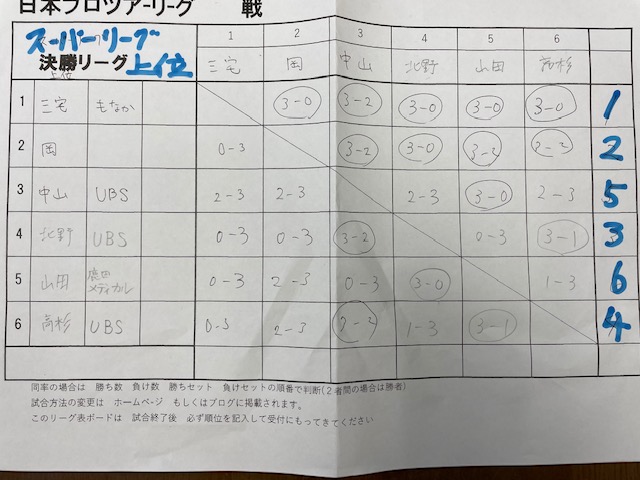 日本プロツアーリーグ 戦
スーパーリーグ
決勝リーグ上位
上位
1 2 3 4 5 6
三宅 岡 中山 北野 山田 高杉
1 三宅 もなか 3-0 3-2 3-0 3-0 3-0 1
2 岡 0-3 3-2 3-0 3-2 2
3 中山 UBS 2-3 2-3 2-3 3-0 2-3 5
4 北野 UBS 0-3 0-3 3-2 0-3 3-1 3
5 山田 メディカル 0-3 2-3 0-3 3-0 1-3 6
6 高杉 UBS 0-3 2-3 1-3 3-1 4
同率の場合は 勝ち数 負け数 勝ちセット 負けセットの順番で判断(2者間の場合は勝者)
試合方法の変更は ホームページ もしくはブログに掲載されます。
このリーグ表ボードは 試合終了後 必ず順位を記入して受付にもってきてください